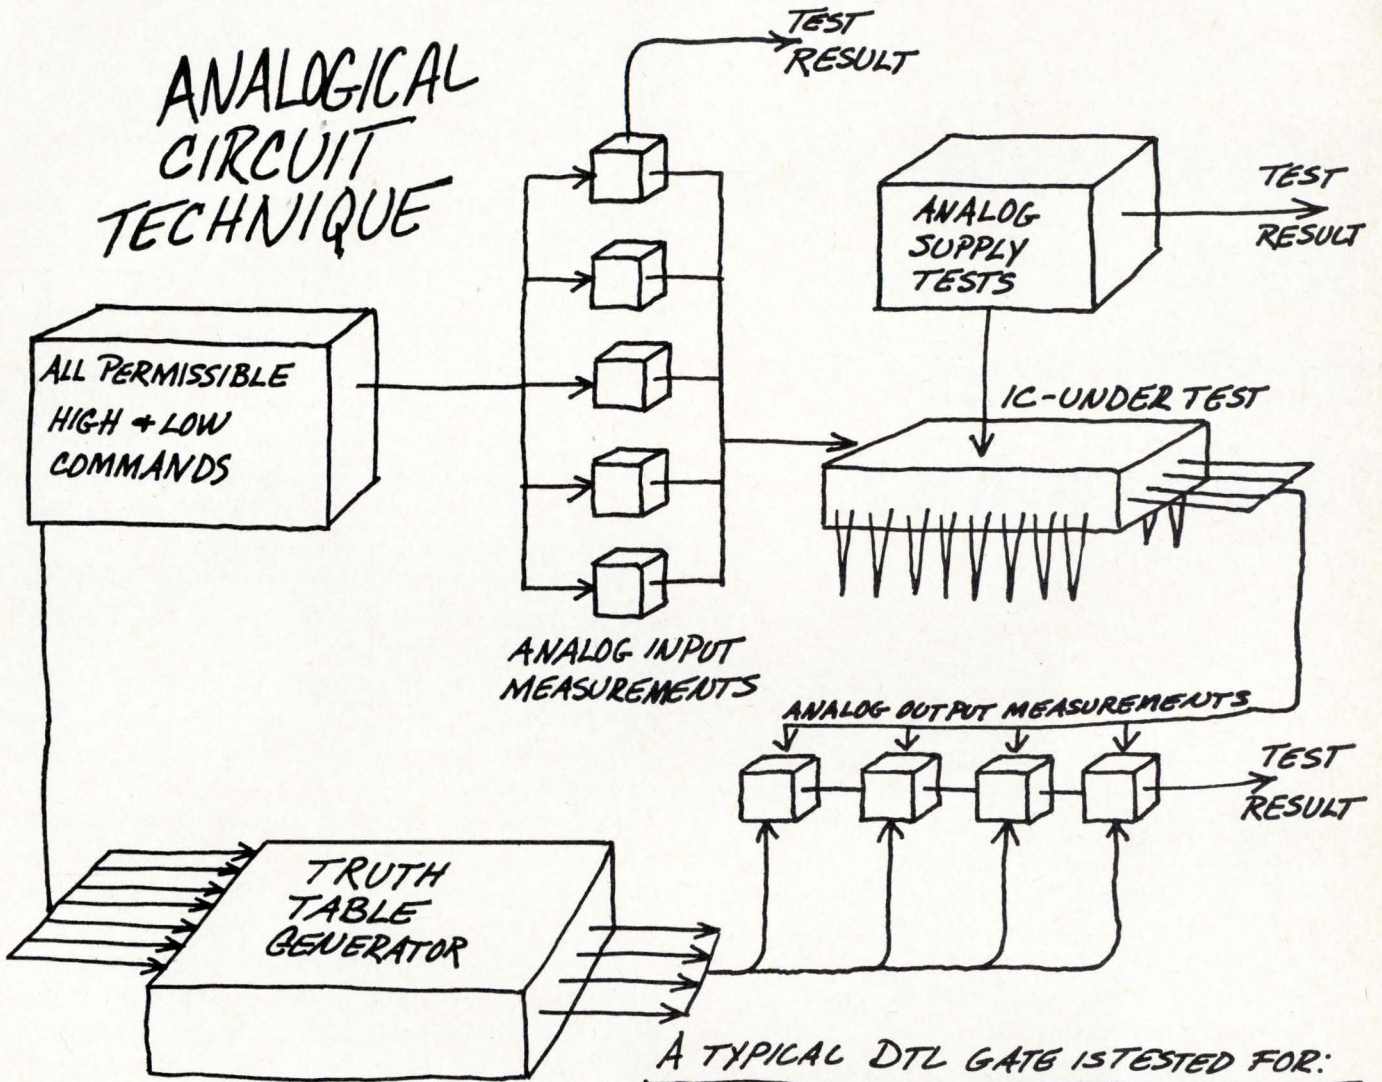 ANALOGICAL
CIRCUIT
TECHNIQUE
TEST
RESULT
ANALOG
SUPPLY
TESTS
TEST
RESULT
ALL PERMISSIBLE
HIGH & LOW
COMMANDS
IC-UNDER TEST
ANALOG INPUT
MEASUREMENTS
ANALOG OUTPUT MEASUREMENTS
TEST
RESULT
TRUTH
TABLE
GENERATOR
A TYPICAL DTL GATE IS TESTED FOR: